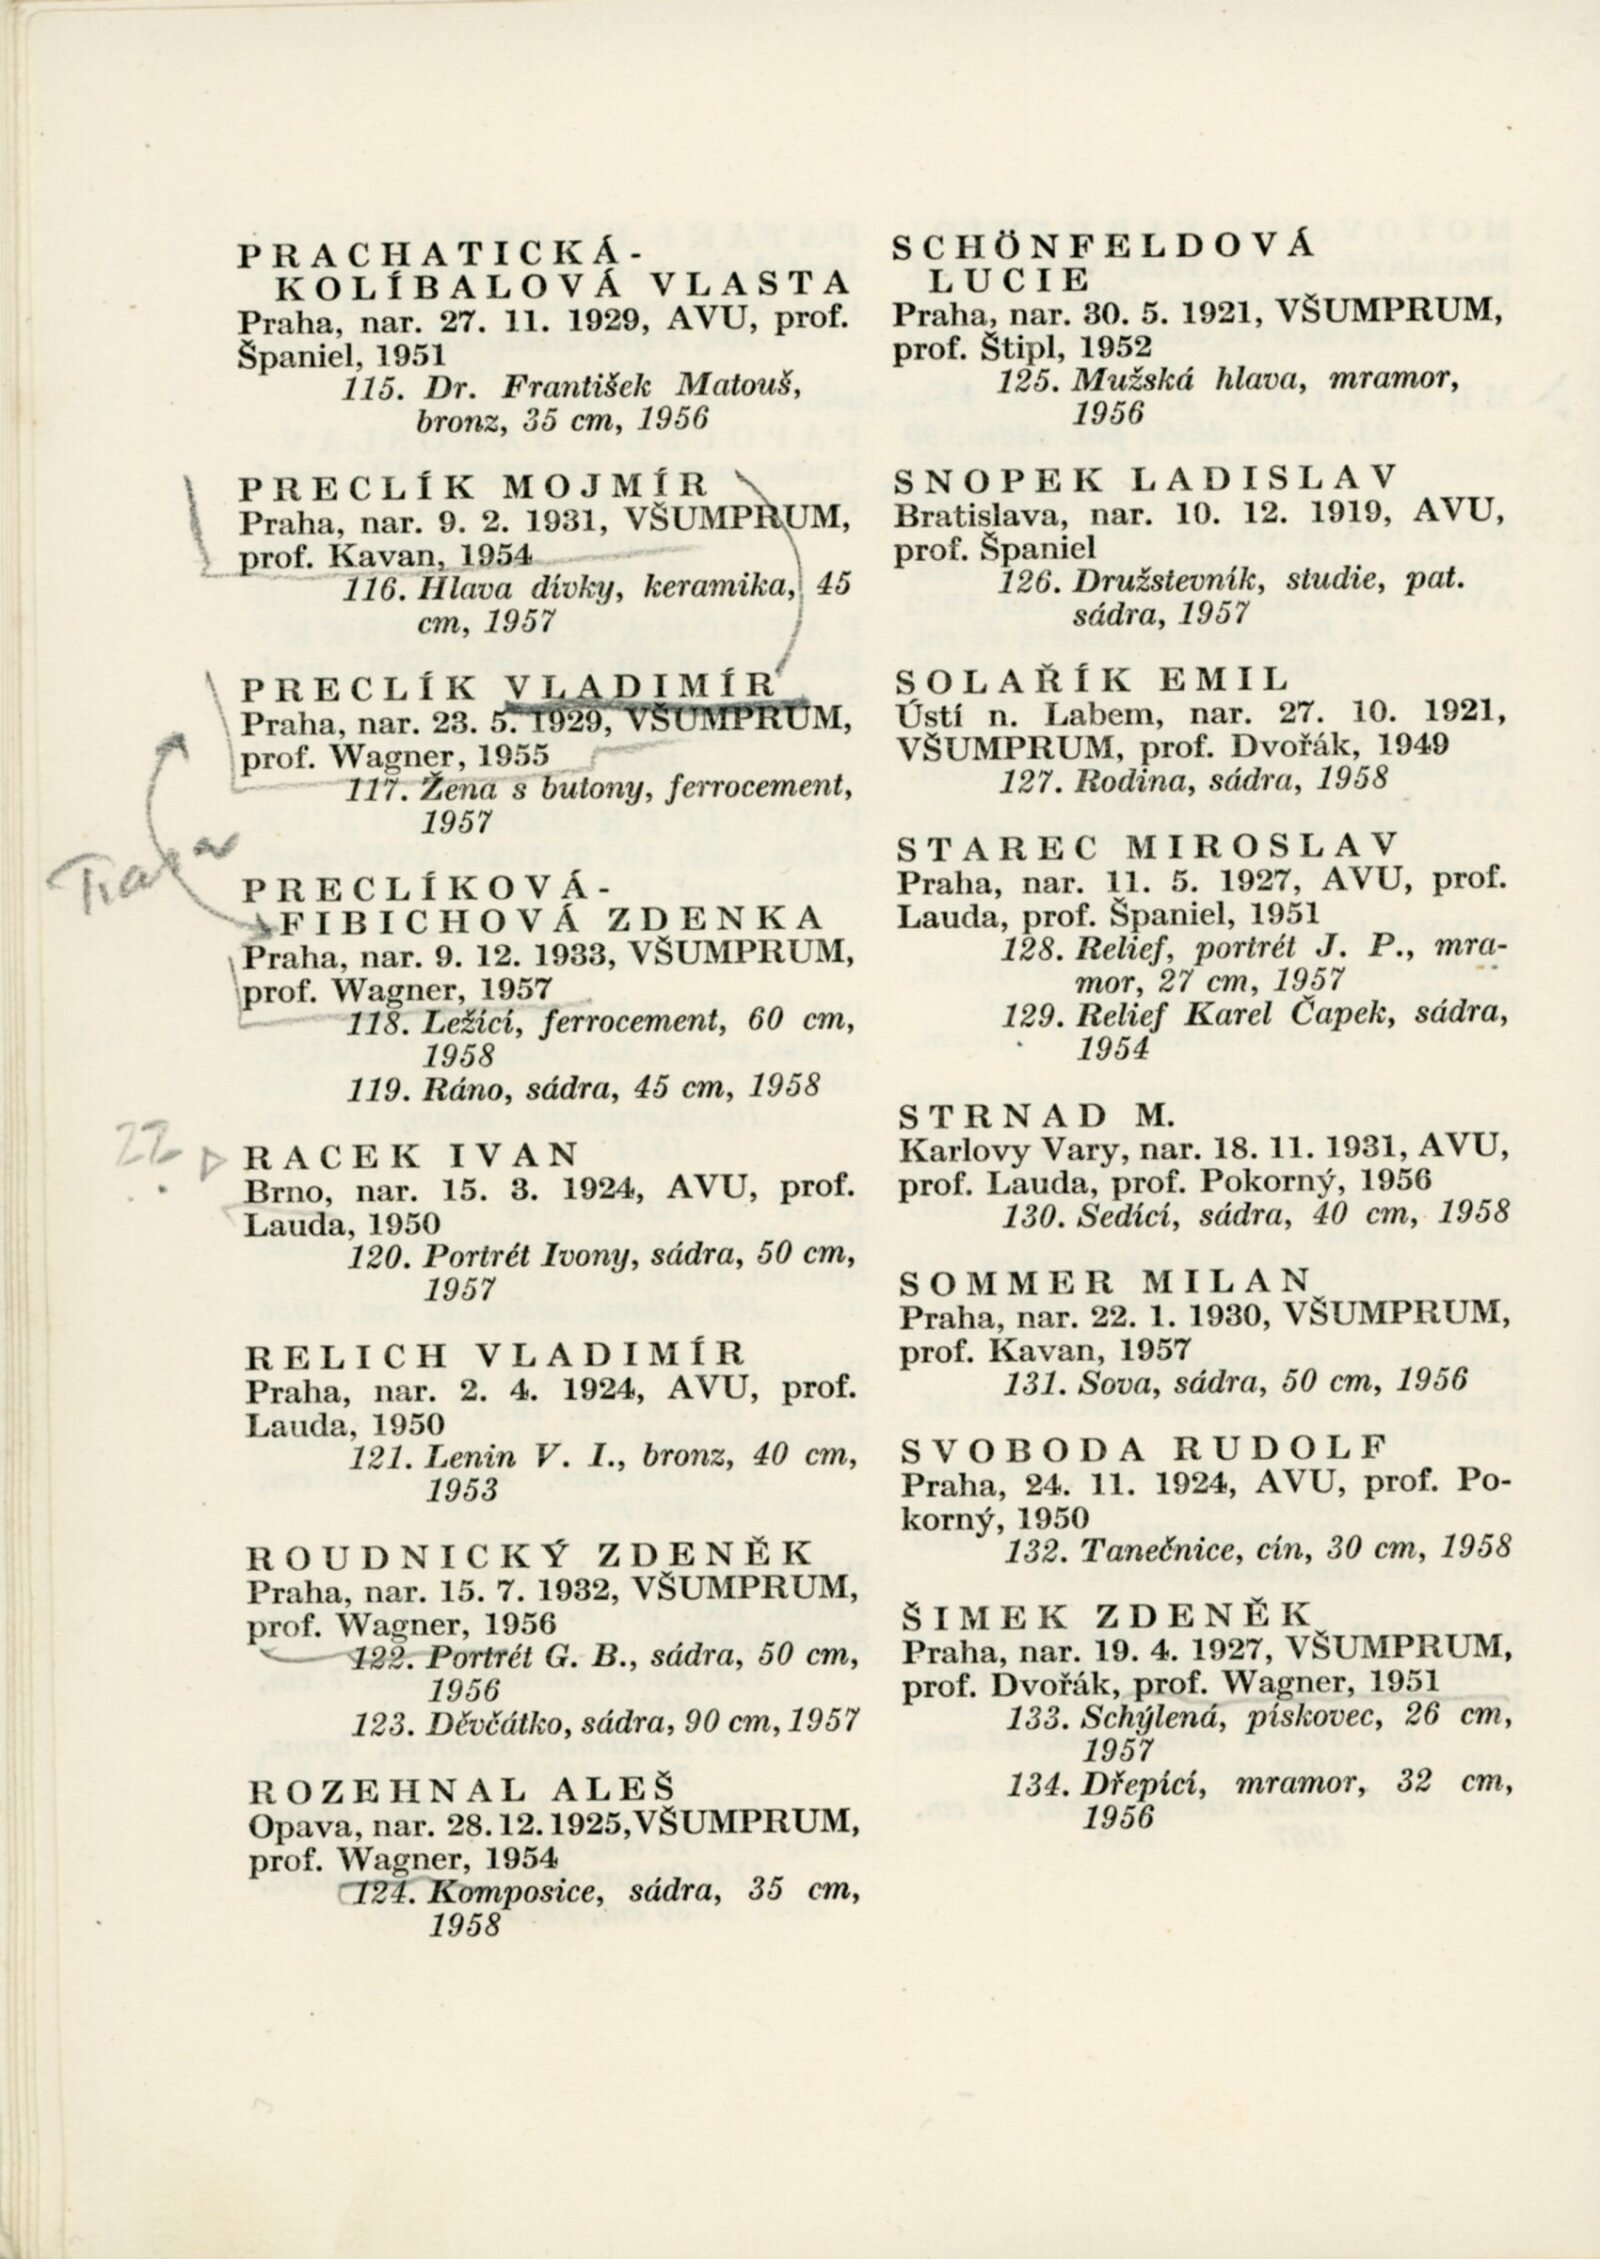 PRACHATICKÁ-
KOLÍBALOVÁ VLASTA
Praha, nar. 27. 11. 1929, AVU, prof.
Španiel, 1951
115. Dr. František Matouš,
bronz, 35 cm, 1956
PRECLÍK MOJMÍR
Praha, nar. 9. 2. 1931, VŠUMPRUM,
prof. Kavan, 1954
116. Hlava dívky, keramika, 45
cm, 1957
PRECLÍK VLADIMÍR
Praha, nar. 23. 5. 1929, VŠUMPRUM,
prof. Wagner, 1955
117. Žena s butony, ferrocement,
1957
PRECLÍKOVÁ-
FIBICHOVÁ ZDENKA
Praha, nar. 9. 12. 1933, VŠUMPRUM,
prof. Wagner, 1957
118. Ležící, ferrocement, 60 cm,
1958
119. Ráno, sádra, 45 cm, 1958
RACEK IVAN
Brno, nar. 15. 3. 1924, AVU, prof.
Lauda, 1950
120. Portrét Ivony, sádra, 50 cm,
1957
RELICH VLADIMÍR
Praha, nar. 2. 4. 1924, AVU, prof.
Lauda, 1950
121. Lenin V. I., bronz, 40 cm,
1953
ROUDNICKÝ ZDENĚK
Praha, nar. 15. 7. 1932, VŠUMPRUM,
prof. Wagner, 1956
122. Portrét G. B., sádra, 50 cm,
1956
123. Děvčátko, sádra, 90 cm, 1957
ROZEHNAL ALEŠ
Opava, nar. 28. 12. 1925, VŠUMPRUM,
prof. Wagner, 1954
124. Komposice, sádra, 35 cm,
1958
SCHÖNFELDOVÁ
LUCIE
Praha, nar. 30. 5. 1921, VŠUMPRUM,
prof. Štipl, 1952
125. Mužská hlava, mramor,
1956
SNOPEK LADISLAV
Bratislava, nar. 10. 12. 1919, AVU,
prof. Španiel
126. Družstevník, studie, pat.
sádra, 1957
SOLAŘÍK EMIL
Ústí n. Labem, nar. 27. 10. 1921,
VŠUMPRUM, prof. Dvořák, 1949
127. Rodina, sádra, 1958
STAREC MIROSLAV
Praha, nar. 11. 5. 1927, AVU, prof.
Lauda, prof. Španiel, 1951
128. Relief, portrét J. P., mra-
mor, 27 cm, 1957
129. Relief Karel Čapek, sádra,
1954
STRNAD M.
Karlovy Vary, nar. 18. 11. 1931, AVU,
prof. Lauda, prof. Pokorný, 1956
130. Sedící, sádra, 40 cm, 1958
SOMMER MILAN
Praha, nar. 22. 1. 1930, VŠUMPRUM,
prof. Kavan, 1957
131. Sova, sádra, 50 cm, 1956
SVOBODA RUDOLF
Praha, 24. 11. 1924, AVU, prof. Po-
korný, 1950
132. Tanečnice, cín, 30 cm, 1958
ŠIMEK ZDENĚK
Praha, nar. 19. 4. 1927, VŠUMPRUM,
prof. Dvořák, prof. Wagner, 1951
133. Schýlená, pískovec, 26 cm,
1957
134. Dřepící, mramor, 32 cm,
1956